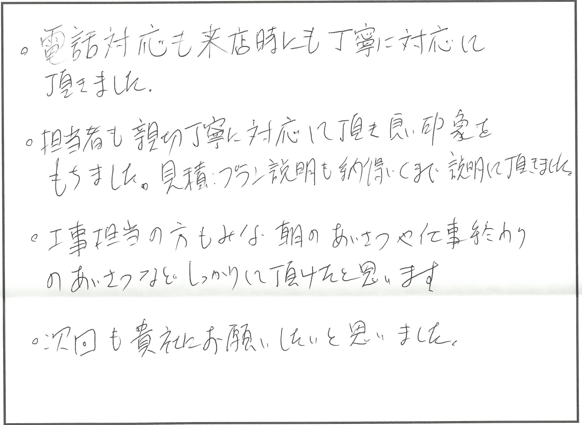 。電話対応も来店時にも丁寧に対応して
頂きました.
。担当者も親切丁寧に対応して頂き良い印象を
もちました。見積:プラン説明も納得いくまで説明して頂きました。
。工事担当の方もみな朝のあいさつや仕事終わり
のあいさつなどしっかりして頂けたと思います
。次回も貴社にお願いしたいと思いました.